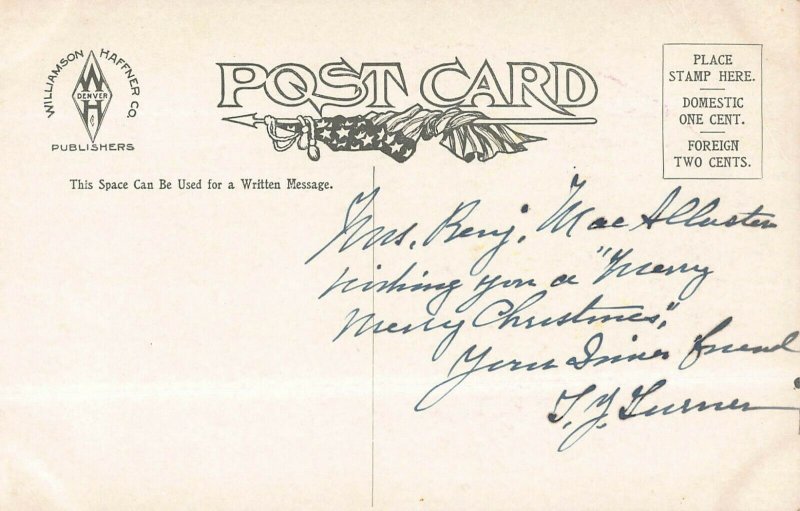 WILLIAMSON HAFFNER CO.
W
DENVER
H
PUBLISHERS
POST CARD
PLACE
STAMP HERE.
DOMESTIC
ONE CENT.
FOREIGN
TWO CENTS.
This Space Can Be Used for a Written Message.
Mrs. Benj. Mac Alluster
wishing you a "Merry
Merry Christmas",
Your friend
T. Y. Turner